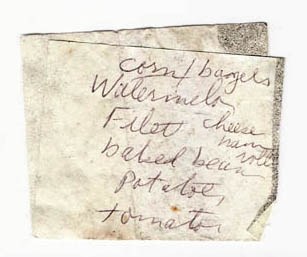 corn / bagels
Watermelo
Filet cheese
ham
baked bean
Potatoe,
tomato